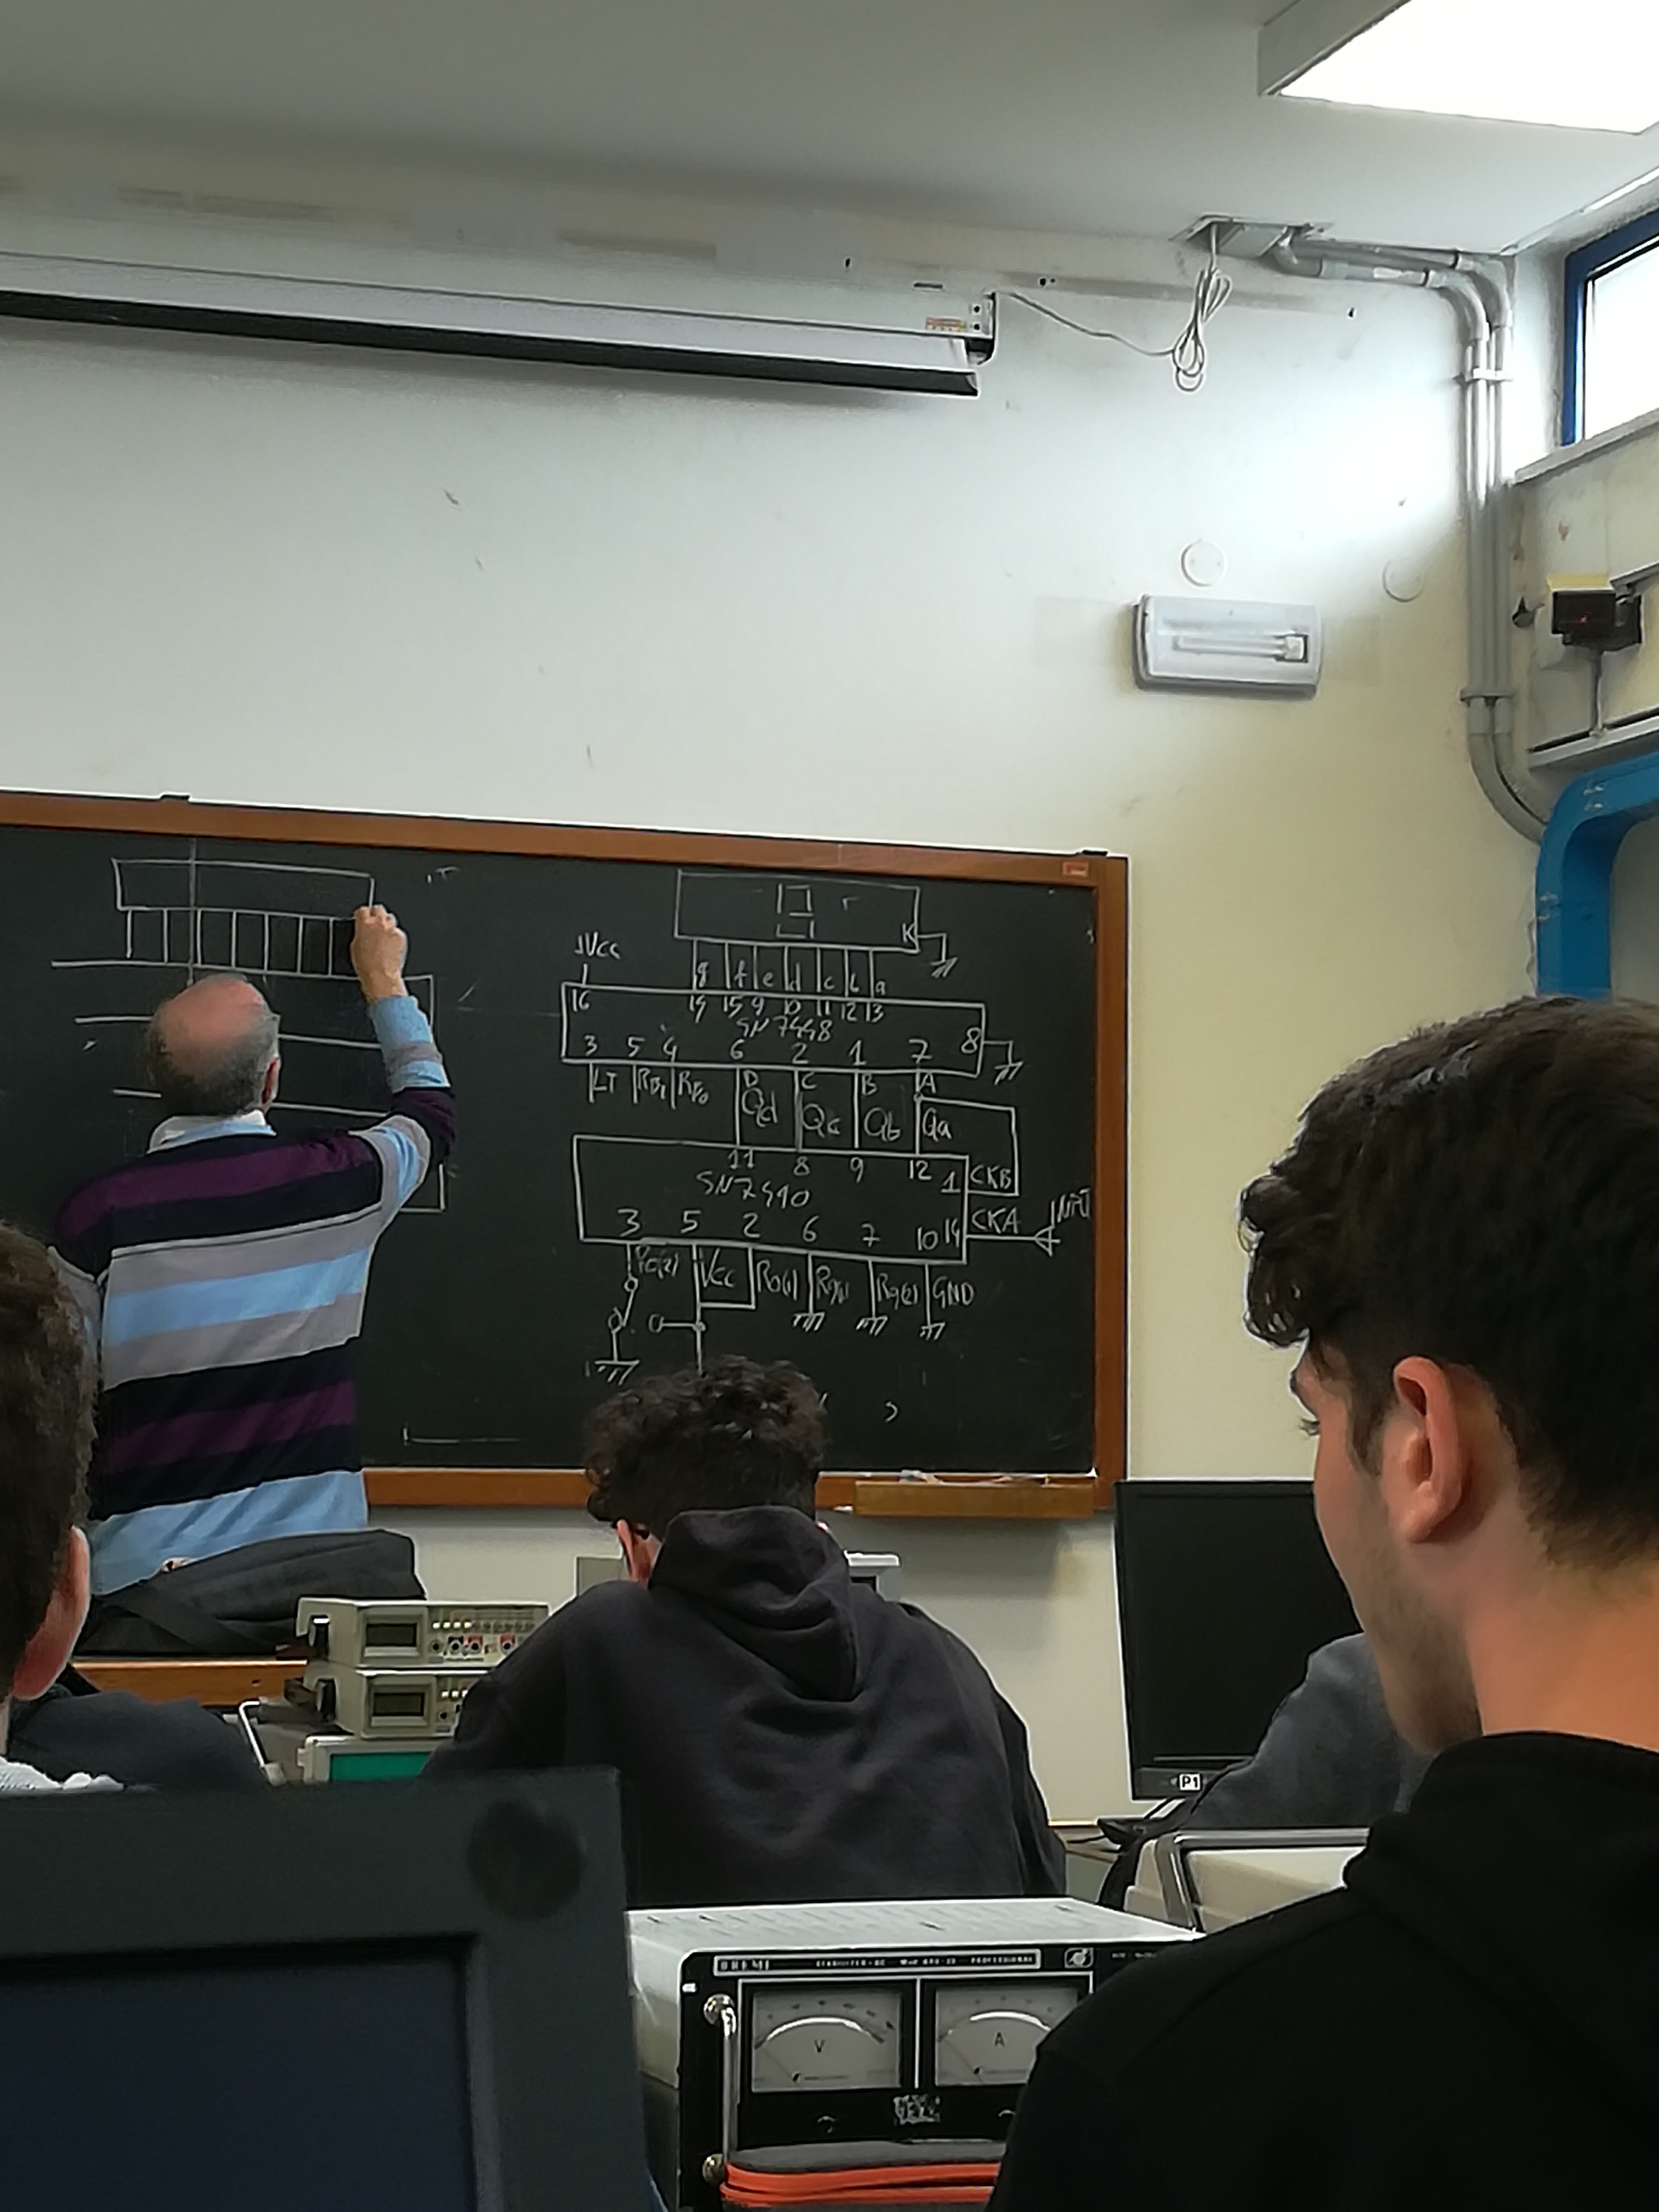 K
+Vcc
g f e d c b a
16 14 15 9 10 11 12 13
SN7448
3 5 4 6 2 1 7 8
LT RBI RBo D C B A
Qd Qc Qb Qa
11 8 9 12 1 CKB
SN7490
3 5 2 6 7 10 14 CKA INPUT
R0(2) Vcc R0(1) R9(1) R9(2) GND
P1
BREMI
V A